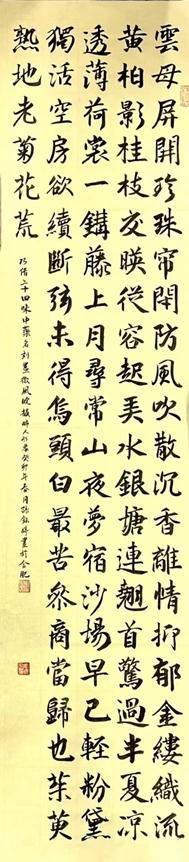 雲母屏開珍珠帘閉防風吹散沉香離情抑郁金縷織流
黃柏影桂枝交暎從容起弄水銀塘連翹首驚過半夏凉
透薄荷裳一鉤藤上月尋常山夜夢宿沙場早已輕粉黛
獨活空房欲續斷弦未得烏頭白最苦參商當歸也茱萸
熟地老菊花荒
巧借二十四味中藥名刻畫微風 癸卯年春月 書於合肥